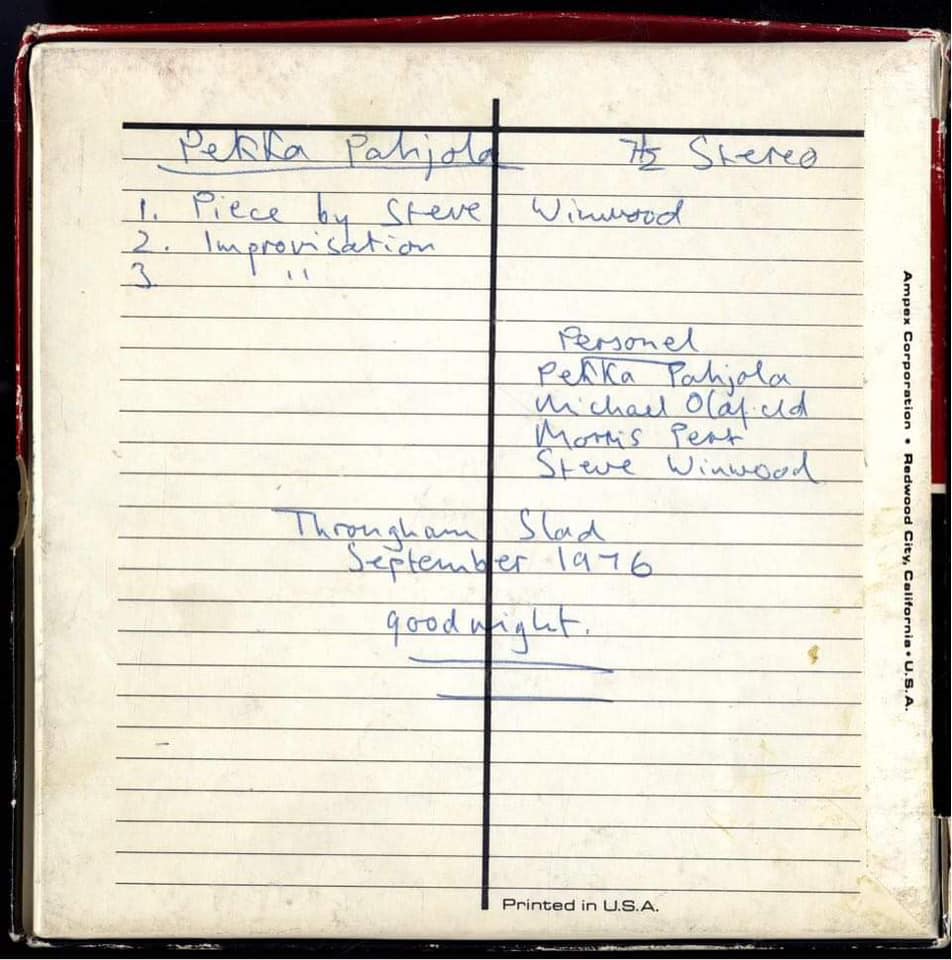 Pekka Pahjola 7½ Stereo
1. Piece by Steve Winwood
2. Improvisation
3 "
Personel
Pekka Pahjola
Michael Olafield
Morris Pert
Steve Winwood
Througham Slad
September 1976
goodnight.
Printed in U.S.A.
Ampex Corporation • Redwood City, California • U.S.A.